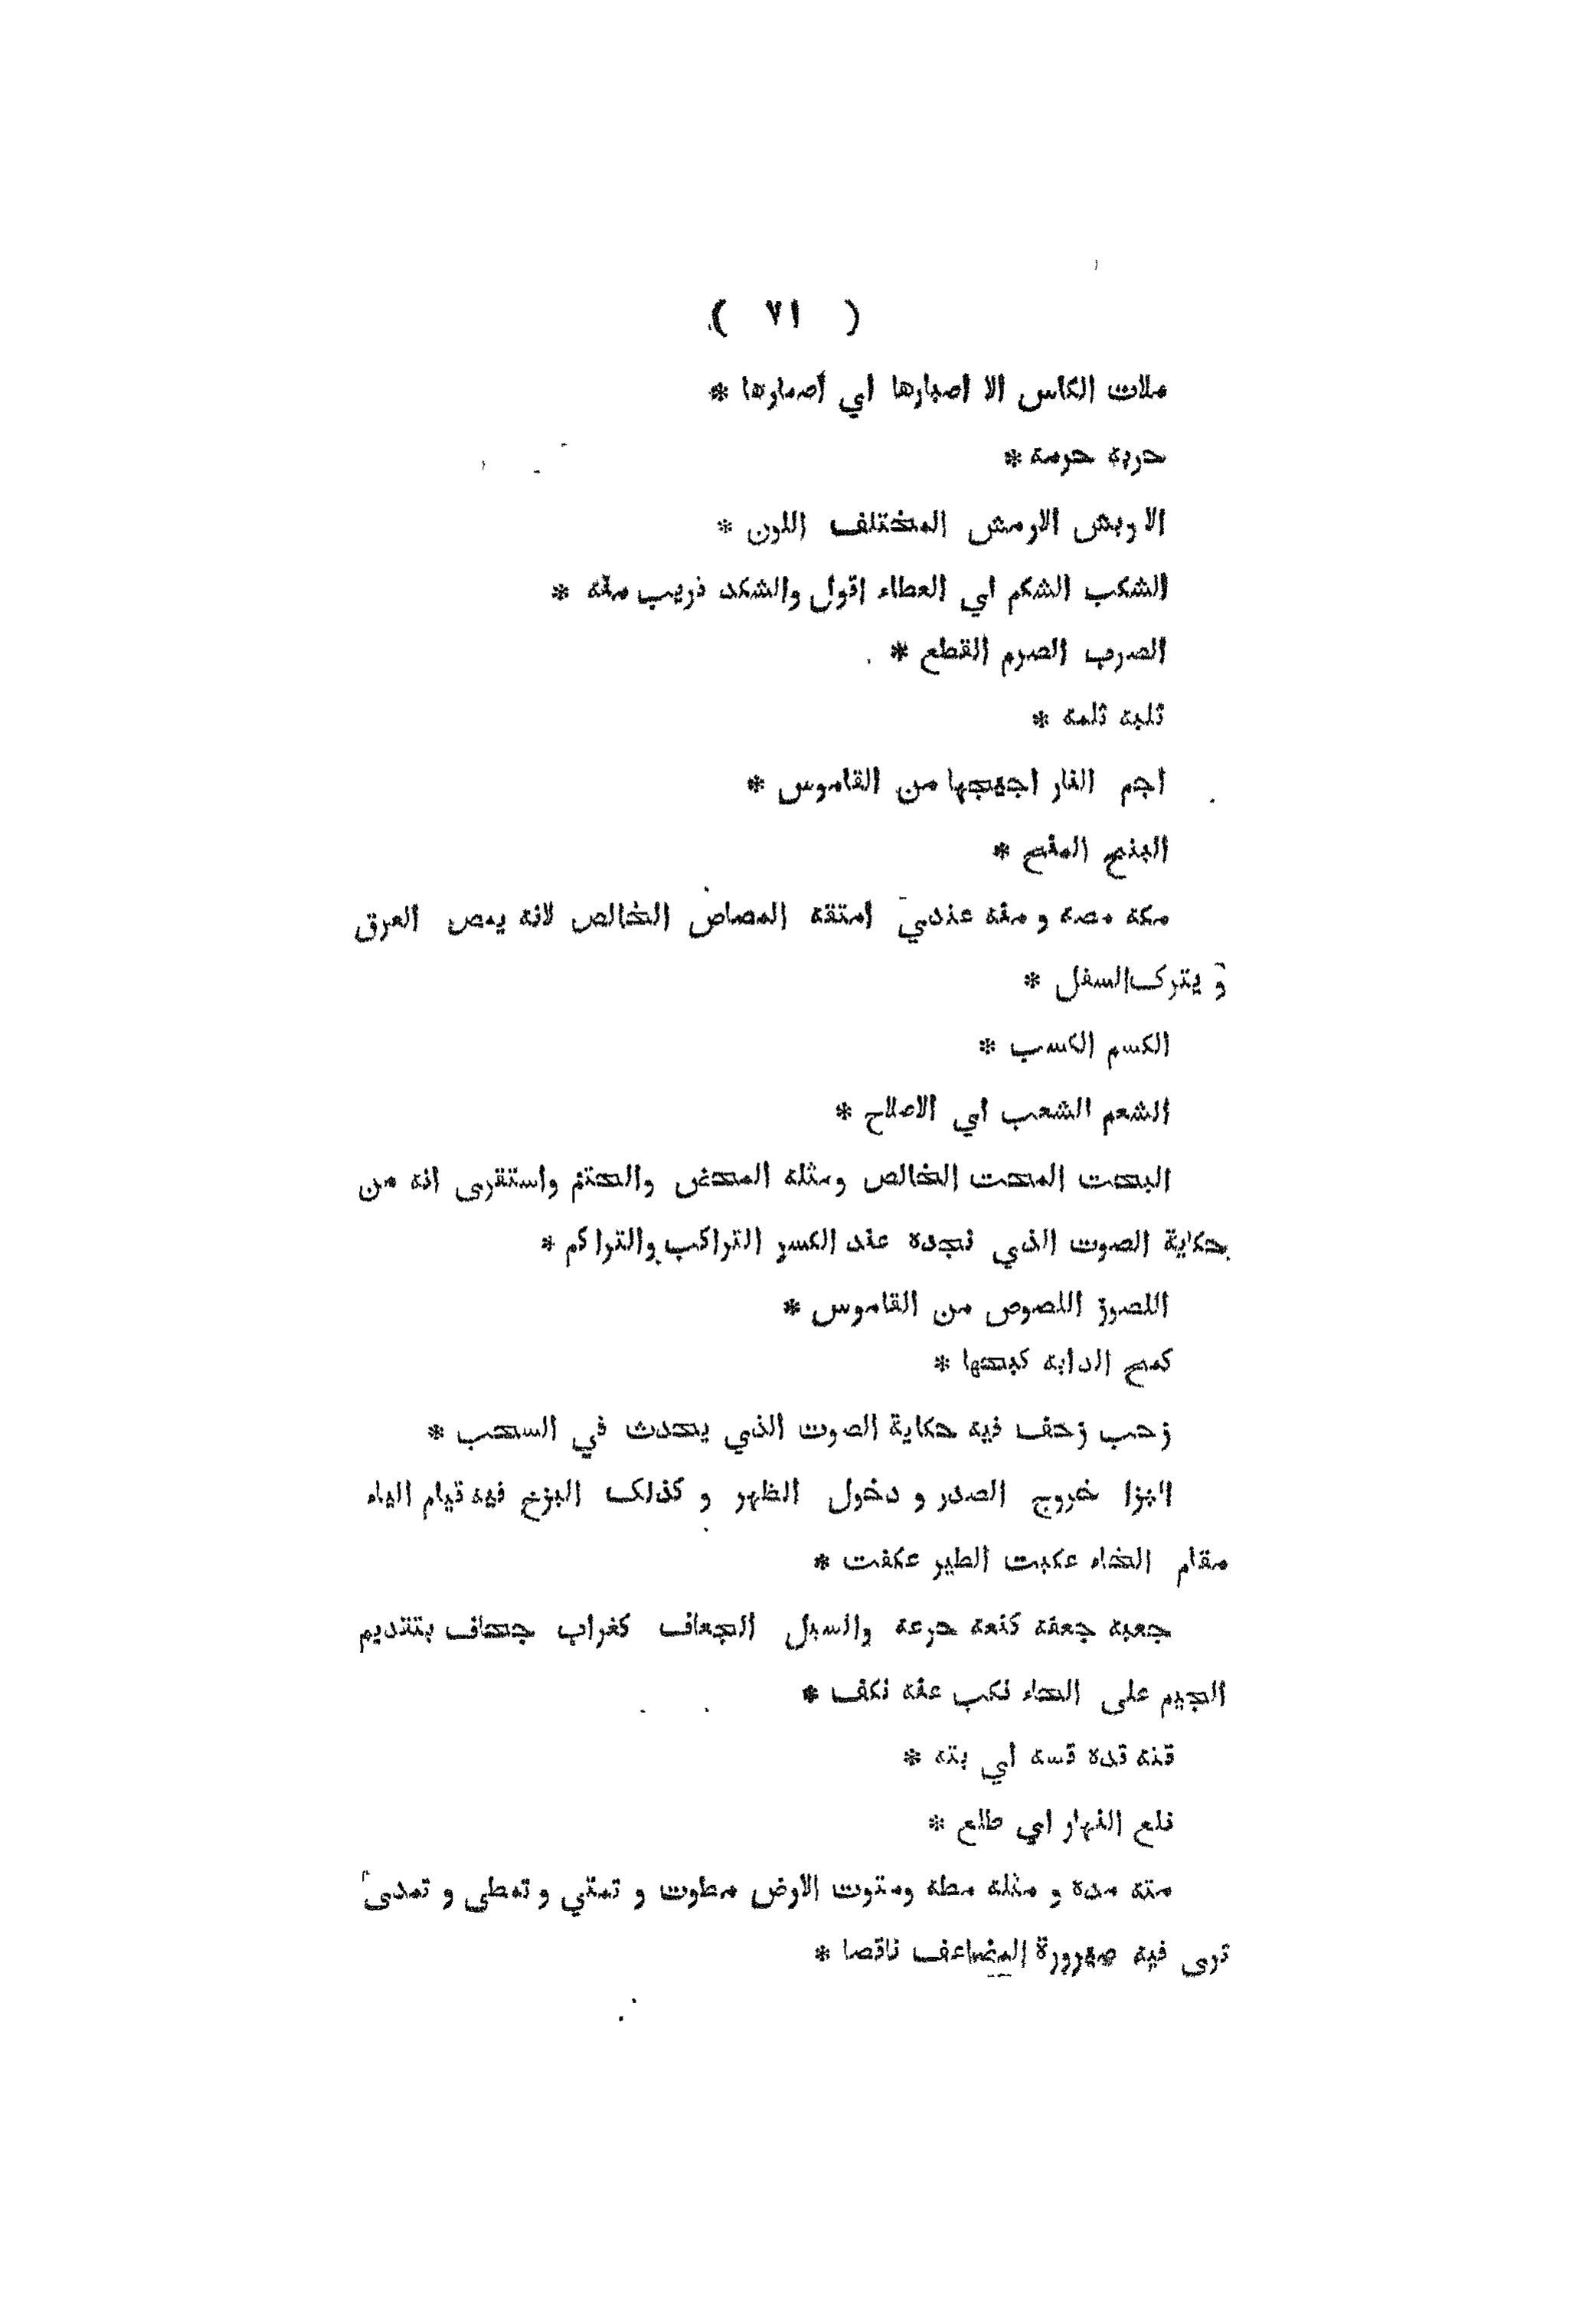 ( ٧١ )
ملات الكاس الا اصبارها اي أصمارها *
حربة حرمة *
الاربش الارمش المختلف اللون *
الشكب الشكم اي العطاء اقول والشكد قريب منه *
الصرب الصرم القطع *
ثلبة ثلمة *
اجم النار اججها من القاموس *
البنح المنح *
مكه مصه و منه عندي امتقه المصاص الخالص لانه يمص العرق
و يترك السفل *
الكسم الكسب *
الشعم الشعب اي الاصلاح *
البحت المحت الخالص ومثله المحض والحتم واستقرى انه من
حكاية الصوت الذي نجده عند الكسر التراكب والتراكم *
اللصوز اللصوص من القاموس *
كمح الدابة كبحها *
زحب زحف فيه حكاية الصوت الذي يحدث في السحب *
البزا خروج الصدر و دخول الظهر و كذلك البزخ فيه قيام الياء
مقام الخاء عكبت الطير عكفت *
جعبه جعفه كنعه جرعه والسيل الجعاف كغراب جحاف بتقديم
الجيم على الحاء نكب عنه نكف *
قثه قده قسه اي بته *
تلع النهار اي طلع *
مته مده و مثله مطه ومتوت الارض مطوت و تمتي و تمطى و تمدى
ترى فيه صيرورة المضاعف ناقصا *